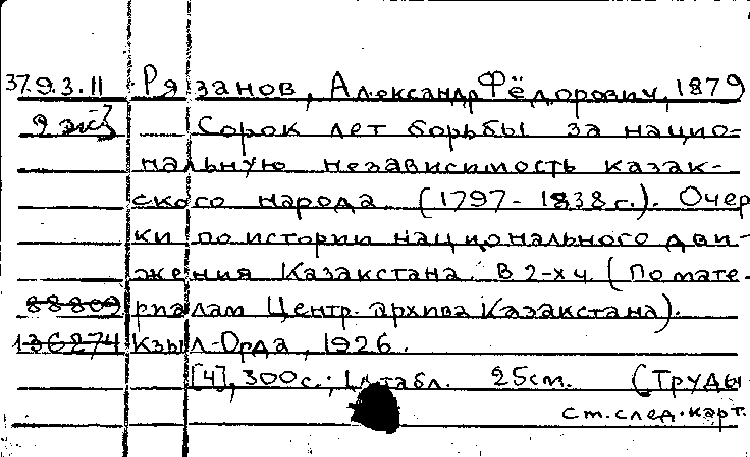 37.9.3.11 Рязанов, Александр Фёдорович, 1879
2 экз Сорок лет борьбы за нацио=
нальную независимость казак-
ского народа (1797-1838 г.). Очер
ки по истории национального дви-
жения Казакстана. В 2-х ч. (По мате-
88809 риалам Центр. архива Казакстана).
136274 Кзыл-Орда, 1926.
[4], 300 с.; табл. 25 см. (Труды
см. след. карт.